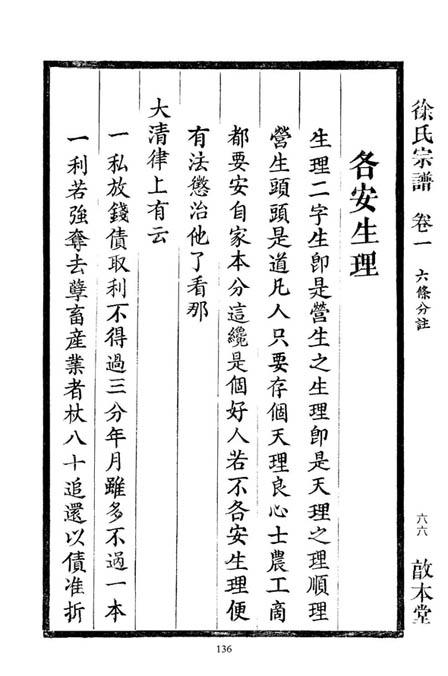 徐氏宗譜 卷一 六條分註 六六 敆本堂
各安生理
生理二字生卽是營生之生理卽是天理之理順理
營生頭頭是道凡人只要存個天理良心士農工商
都要安自家本分這纔是個好人若不各安生理便
有法懲治他了看那
大清律上有云
一私放錢債取利不得過三分年月雖多不過一本
一利若強奪去孳畜産業者杖八十追還以債准折
136